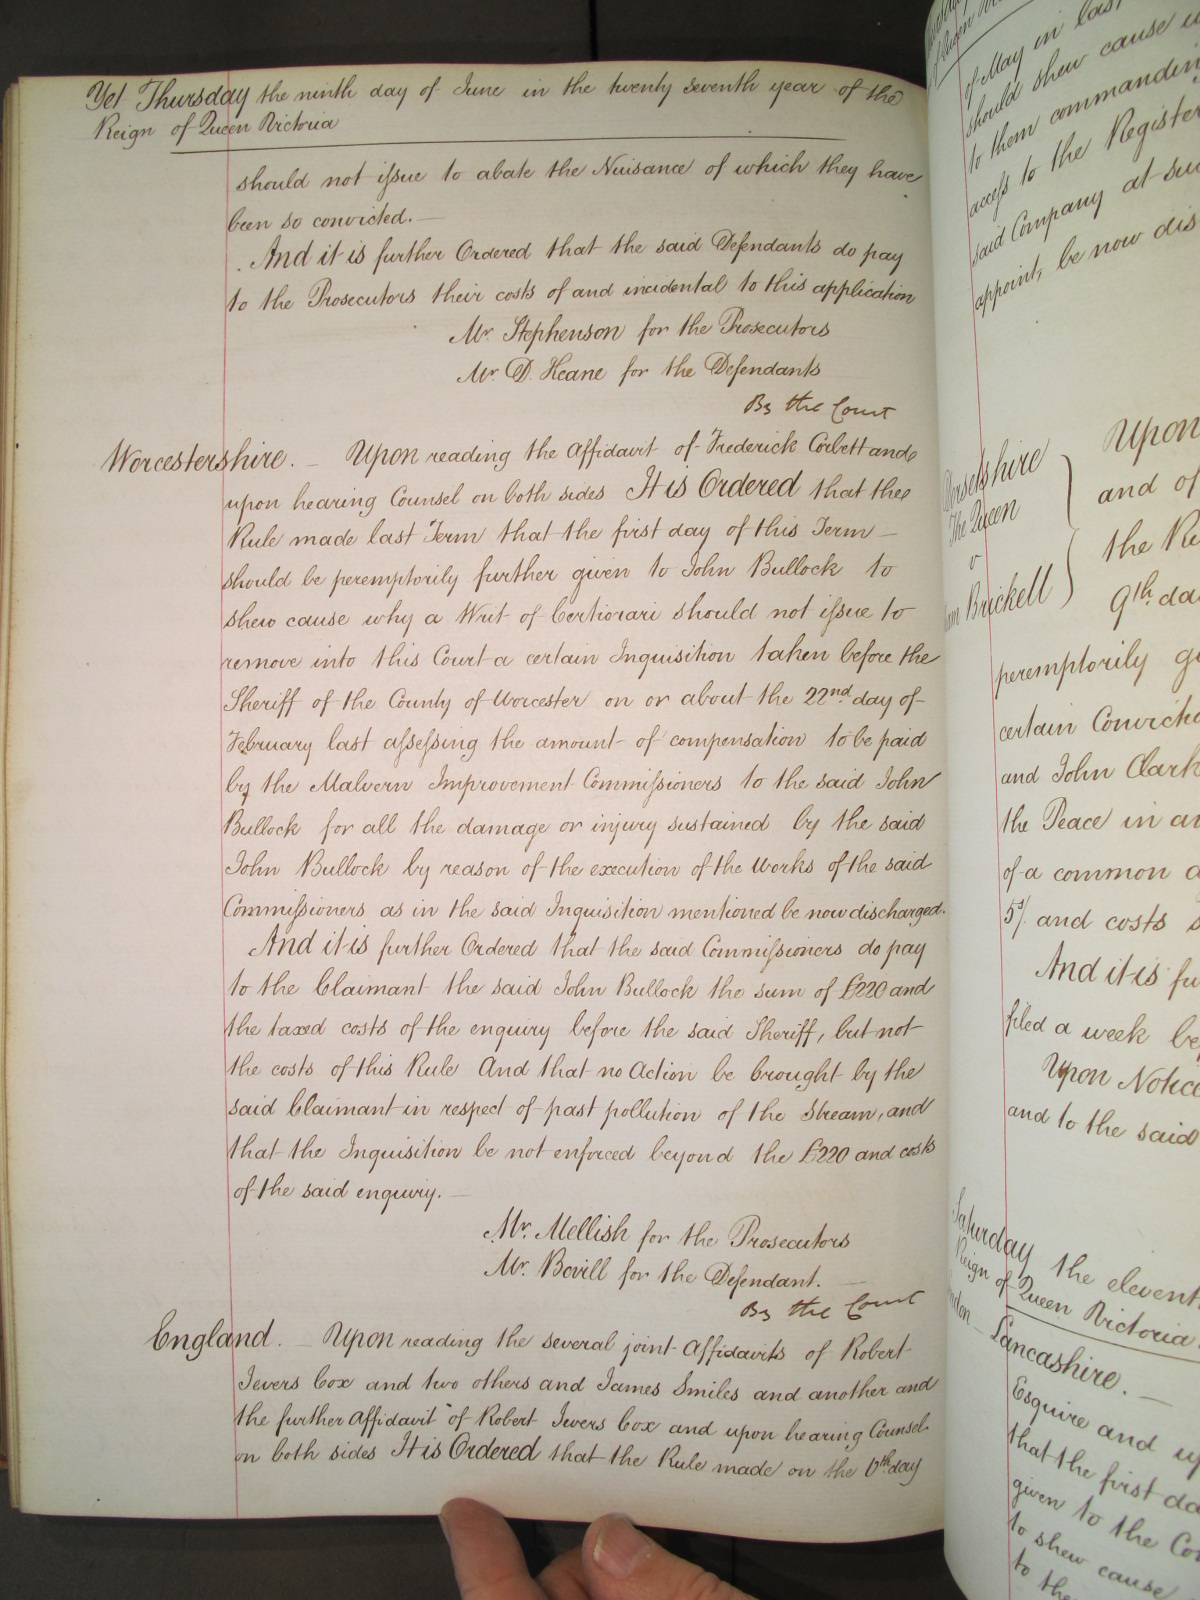 Yet Thursday the ninth day of June in the twenty seventh year of the
Reign of Queen Victoria
should not issue to abate the Nuisance of which they have
been so convicted.—
And it is further Ordered that the said Defendants do pay
to the Prosecutors their costs of and incidental to this application
Mr. Stephenson for the Prosecutors
Mr. D. Keane for the Defendants
By the Court
Worcestershire. – Upon reading the Affidavit of Frederick Corbett and
upon hearing Counsel on both sides It is Ordered that the
Rule made last Term that the first day of this Term —
should be peremptorily further given to John Bullock to
shew cause why a Writ of Certiorari should not issue to
remove into this Court a certain Inquisition taken before the
Sheriff of the County of Worcester on or about the 22nd day of
February last assessing the amount of compensation to be paid
by the Malvern Improvement Commissioners to the said John
Bullock for all the damage or injury sustained by the said
John Bullock by reason of the execution of the Works of the said
Commissioners as in the said Inquisition mentioned be now discharged.
And it is further Ordered that the said Commissioners do pay
to the Claimant the said John Bullock the sum of £220 and
the taxed costs of the enquiry before the said Sheriff, but not
the costs of this Rule And that no Action be brought by the
said Claimant in respect of past pollution of the Stream, and
that the Inquisition be not enforced beyond the £220 and costs
of the said enquiry. —
Mr. Mellish for the Prosecutors
Mr. Bovill for the Defendant. —
By the Court
England. – Upon reading the several joint Affidavits of Robert
Ievers Cox and two others and James Smiles and another and
the further Affidavit of Robert Ievers Cox and upon hearing Counsel
on both sides It is Ordered that the Rule made on the 6th day
of May in last
should shew cause
to them commanding
access to the Register
said Company at
appoint, be now
Dorsetshire
The Queen
v
Brickell
Upon
and of
the
9th. da
peremptorily
certain
and John Clark
the Peace in
of a common
5/ and costs
And it is
filed a week
Upon Notice
and to the said
Saturday the eleventh
Reign of Queen Victoria
Lancashire. —
Esquire and
that the first
given to the
to shew cause
to the